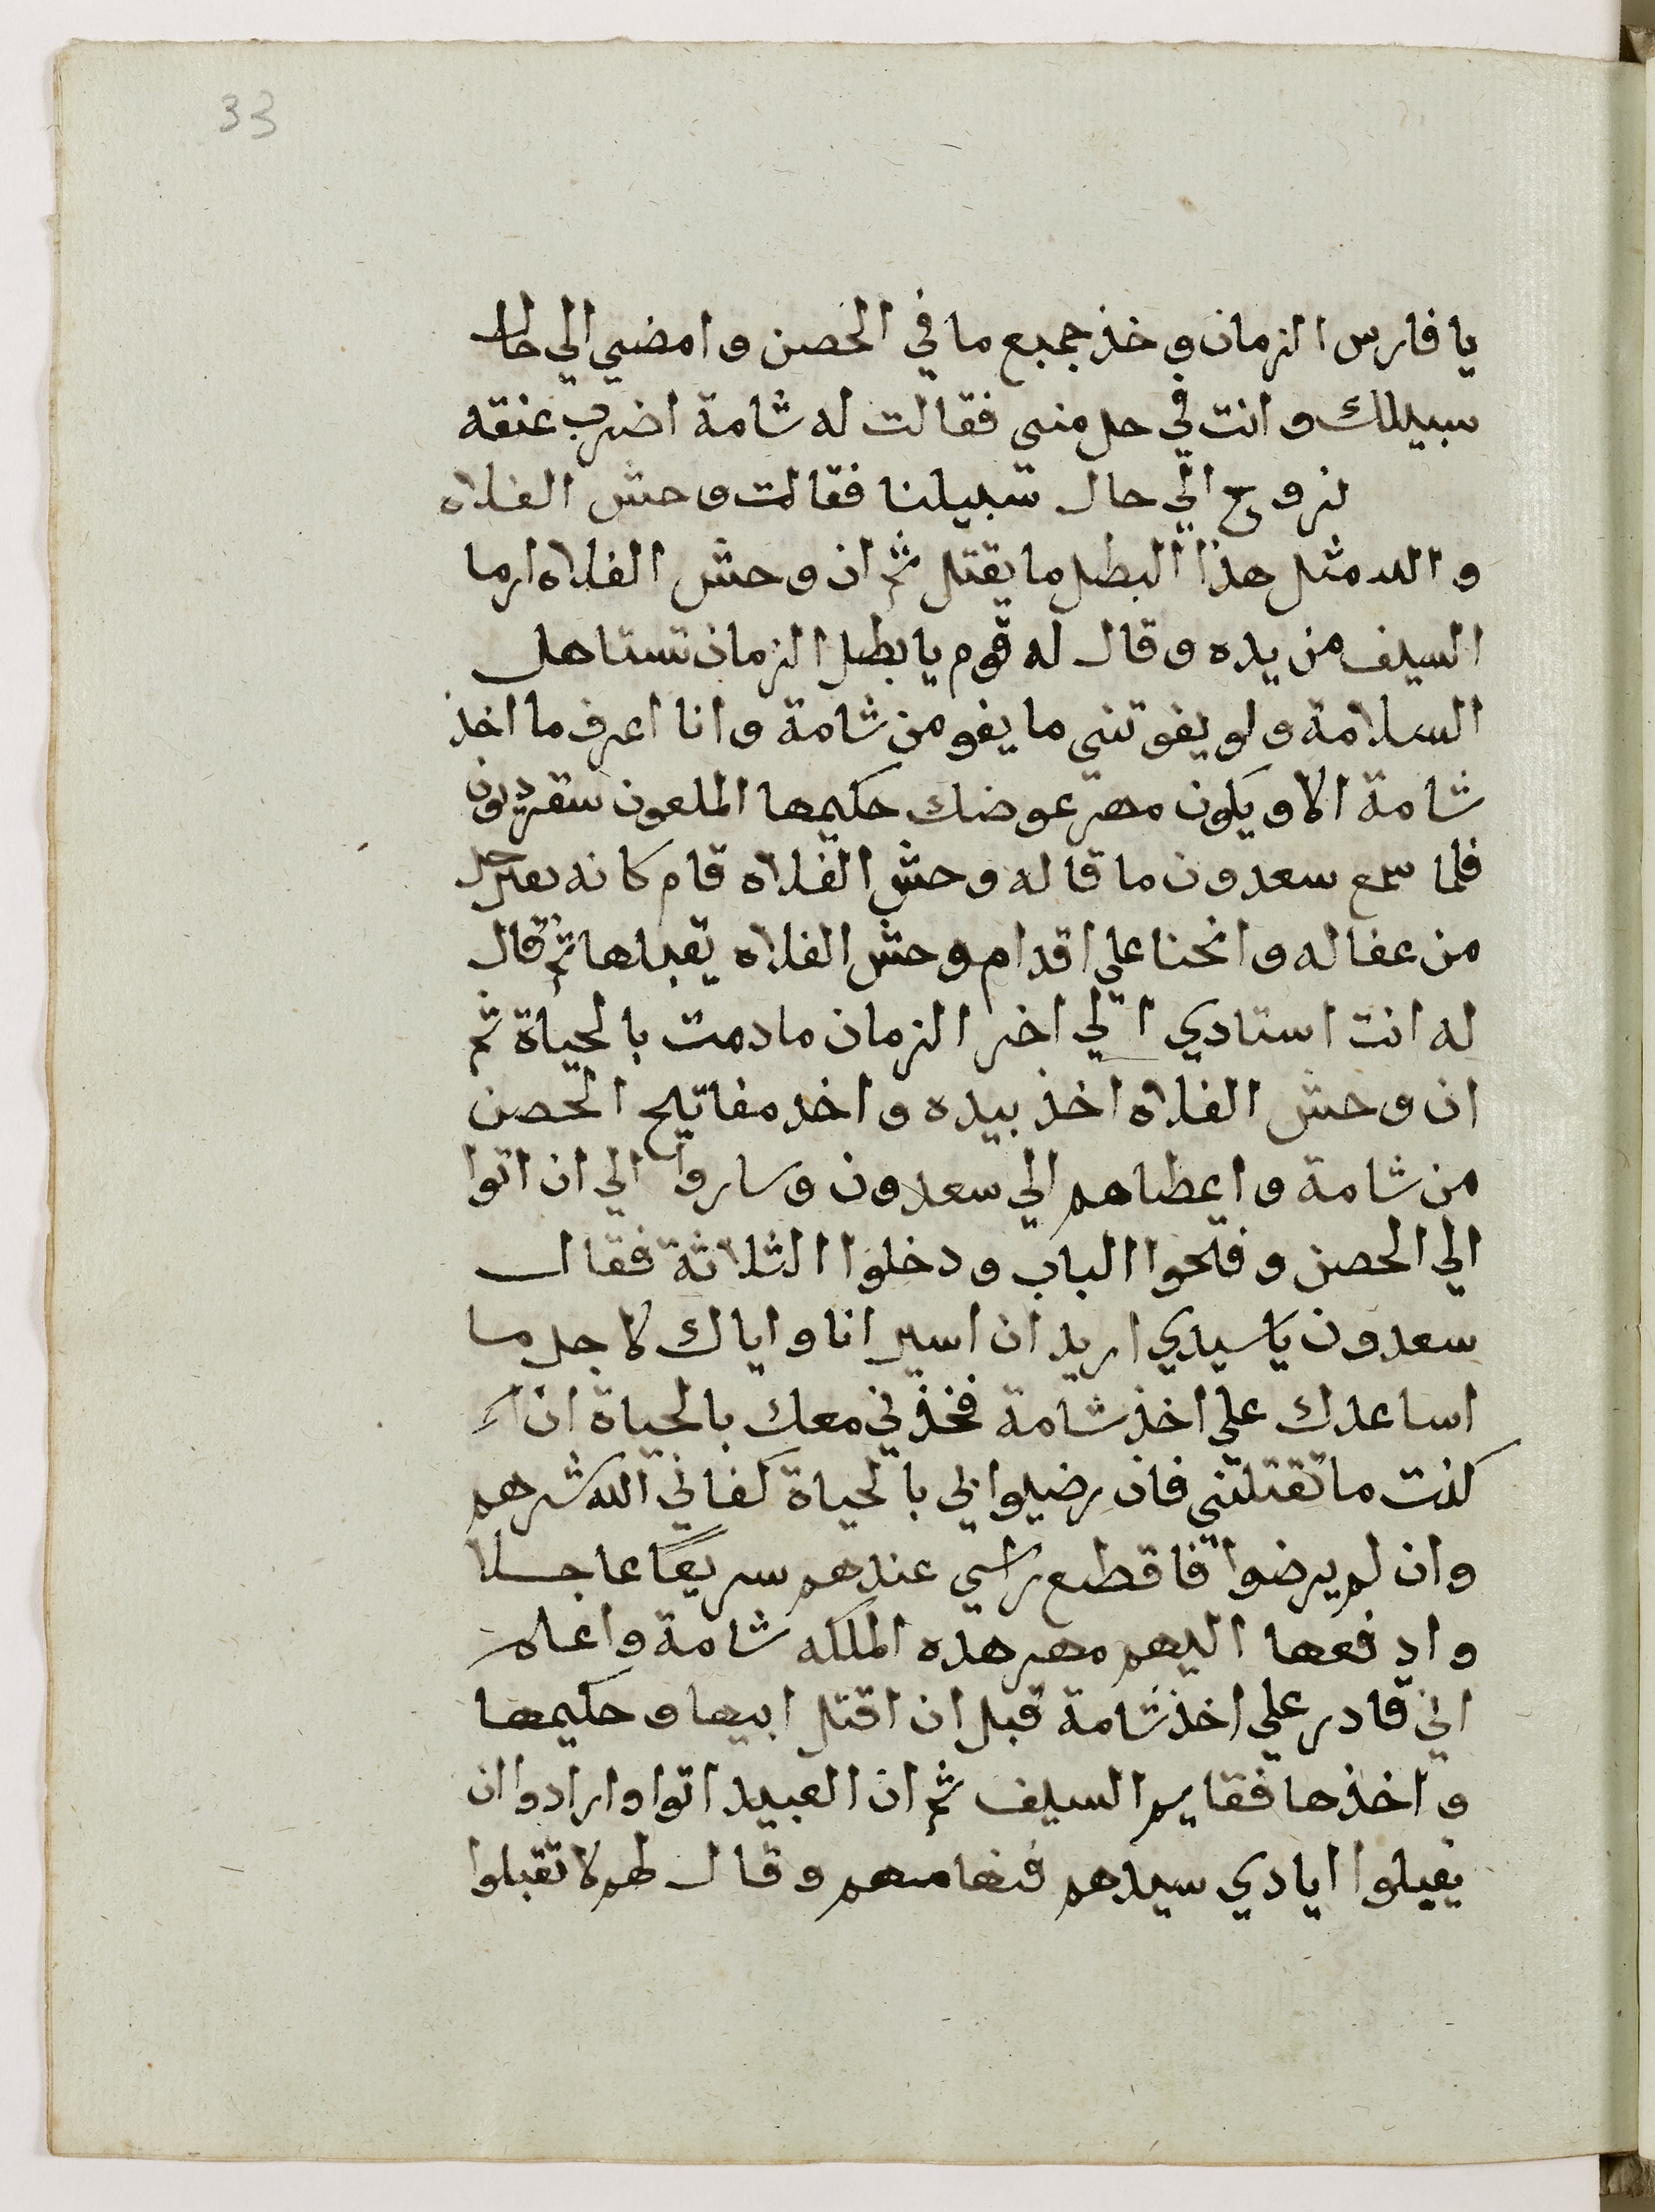 33
يا فارس الزمان وخذ جميع ما في الحصن وامضي الي حال
سبيلك وانت في حل مني فقالت له شامة اضرب عنقه
نروح الي حال سبيلنا فقالت وحش الفلاه
والله مثل هذا البطل ما يقتل ثم ان وحش الفلاه ارما
السيف من يده وقال له قوم يا بطل الزمان تستاهل
السلامة ولو يفوتني ما يفو من شامة وانا اعرف ما اخذ
شامة الا ويكون مهر عوضك حكيمها الملعون سقرديون
فلما سمع سعدون ما قاله وحش الفلاه قام كانه
من عقاله وانحنا علي اقدام وحش الفلاه يقبلها ثم قال
له انت استادي الي اخر الزمان ما دمت بالحياة ثم
ان وحش الفلاه اخذ بيده واخد مفاتيح الحصن
من شامة واعطاهم الي سعدون وساروا الي ان اتوا
الي الحصن وفتحوا الباب ودخلوا الثلاثة فقال
سعدون يا سيدي اريد ان اسير انا واياك لاجل ما
اساعدك علي اخذ شامة فخذني معك بالحياة ان
كنت ما تقتلني فان رضيوا بي بالحياة كفاني الله شرهم
وان لم يرضوا فاقطع راسي عندهم سريعًا عاجلا
وادفعها اليهم مهر هده الملكه شامة واعلم
اني قادر علي اخذ شامة قبل ان اقتل ابيها وحكيمها
واخذها فقايم السيف ثم ان العبيد اتوا وارادوا ان
يقبلوا ايادي سيدهم فنهاهم وقال لهم لا تقبلوا